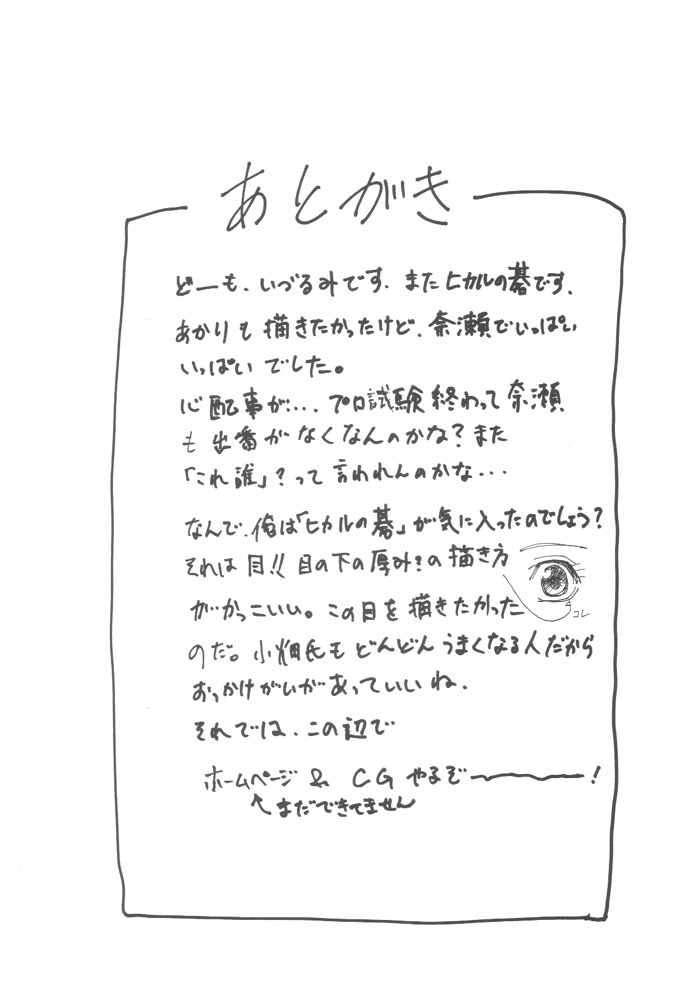 あとがき
どーも、いづるみです、またヒカルの碁です、
あかりも描きたかったけど、奈瀬でいっぱい
いっぱいでした。
心配事が... プロ試験終わって奈瀬
も出番がなくなんのかな？また
「これ誰」？って言われんのかな...
なんで、俺は「ヒカルの碁」が気に入ったのでしょう？
それは目!! 目の下の厚み？の描き方
がかっこいい。この目を描きたかった
コレ
のだ。小畑氏もどんどんうまくなる人だから
おっかけがいがあっていいね、
それでは、この辺で
ホームページ & CG やるぞ――！
↖まだできてません